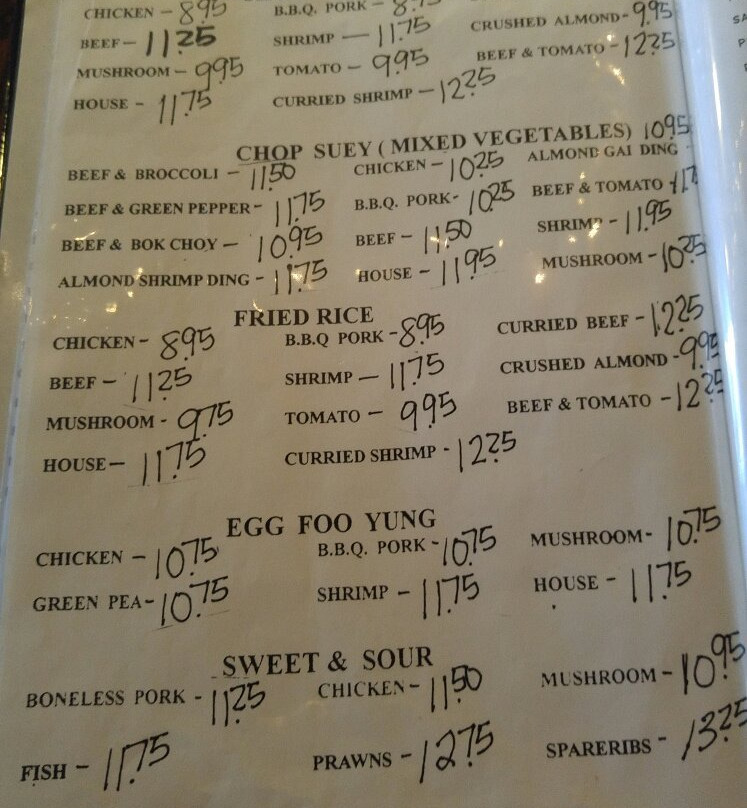 CHICKEN - 8.95 B.B.Q. PORK - 8.75 CRUSHED ALMOND - 9.95
BEEF - 11.25 SHRIMP - 11.75 BEEF & TOMATO - 12.25
MUSHROOM - 9.95 TOMATO - 9.95
HOUSE - 11.75 CURRIED SHRIMP - 12.25
CHOP SUEY ( MIXED VEGETABLES) 10.95
BEEF & BROCCOLI - 11.50 CHICKEN - 10.25 ALMOND GAI DING -
BEEF & GREEN PEPPER - 11.75 B.B.Q. PORK - 10.25 BEEF & TOMATO
BEEF & BOK CHOY - 10.95 BEEF - 11.50 SHRIMP - 11.95
ALMOND SHRIMP DING - 11.75 HOUSE - 11.95 MUSHROOM - 10.25
FRIED RICE
CHICKEN - 8.95 B.B.Q PORK - 8.95 CURRIED BEEF - 12.25
BEEF - 11.25 SHRIMP - 11.75 CRUSHED ALMOND - 9.95
MUSHROOM - 9.75 TOMATO - 9.95 BEEF & TOMATO - 12.25
HOUSE - 11.75 CURRIED SHRIMP - 12.25
EGG FOO YUNG
CHICKEN - 10.75 B.B.Q. PORK - 10.75 MUSHROOM - 10.75
GREEN PEA - 10.75 SHRIMP - 11.75 HOUSE - 11.75
SWEET & SOUR
BONELESS PORK - 11.25 CHICKEN - 11.50 MUSHROOM - 10.95
FISH - 11.75 PRAWNS - 12.75 SPARERIBS - 13.25